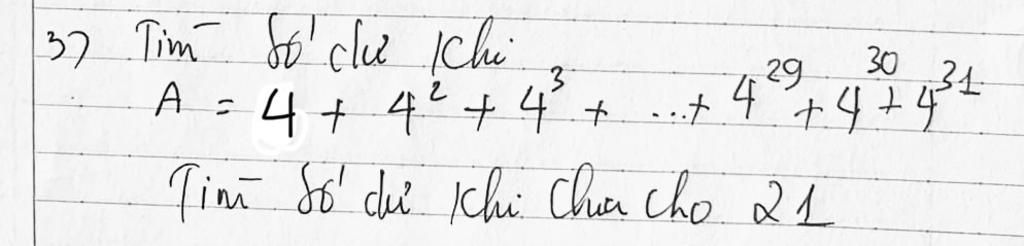 3) Tìm số dư khi
A = 4 + 4² + 4³ + ... + 4²⁹ + 4³⁰ + 4³¹
Tìm số dư khi chia cho 21